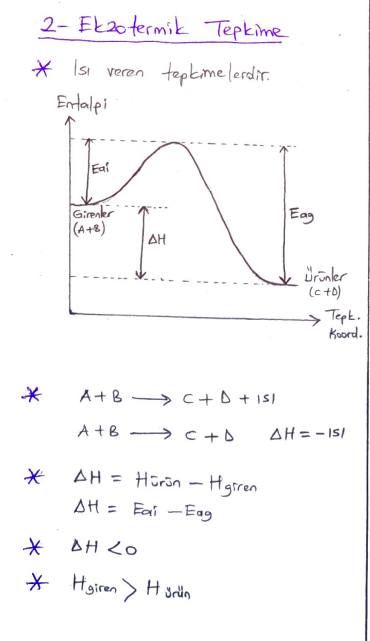 2- Ekzotermik Tepkime
* Isı veren tepkimelerdir.
Entalpi
Eai
Girenler
(A+B)
ΔH
Eag
Ürünler
(C+D)
Tepk.
Koord.
* A+B → C+D+ısı
A+B → C+D ΔH=-ısı
* ΔH = Hürün - Hgiren
ΔH = Eai - Eag
* ΔH <0
* Hgiren > Hürün